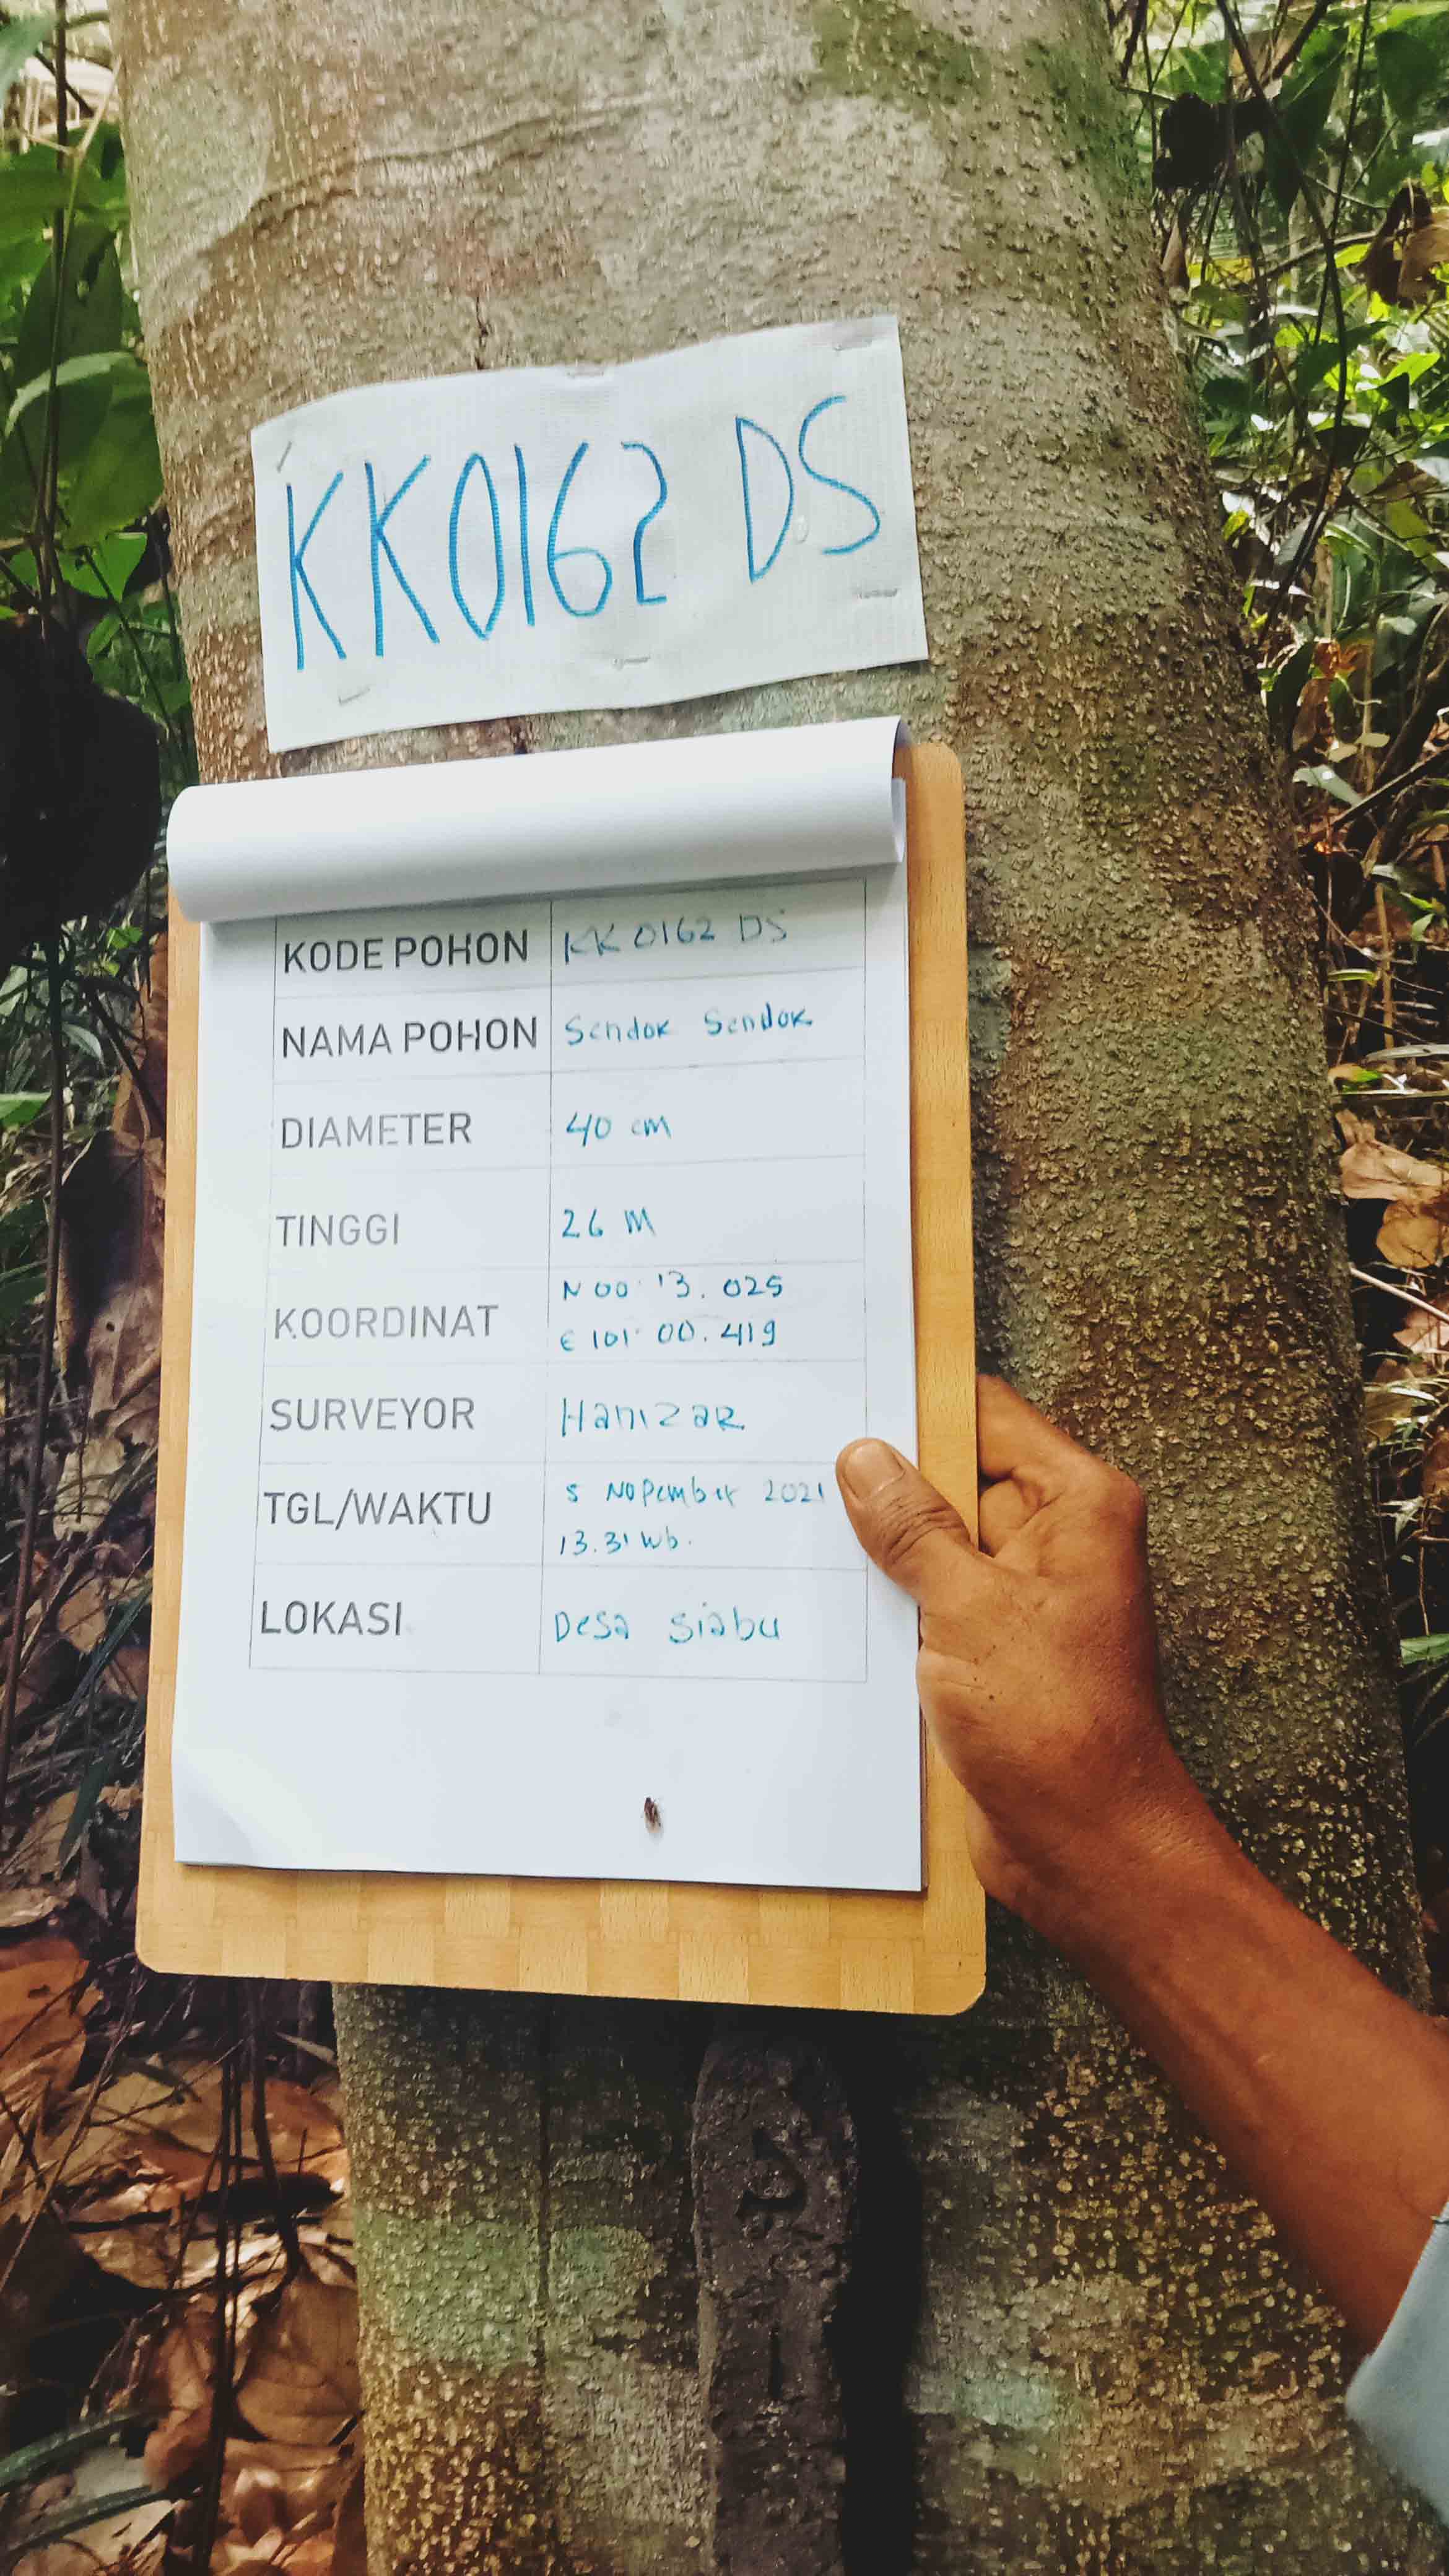 KK0162 DS
KODE POHON KK 0162 DS
NAMA POHON Sendok Sendok
DIAMETER 40 cm
TINGGI 26 M
KOORDINAT N 00 13. 025
E 101 00. 419
SURVEYOR Hanizar
TGL/WAKTU 5 Nopember 2021
13.31 wb.
LOKASI Desa Siabu